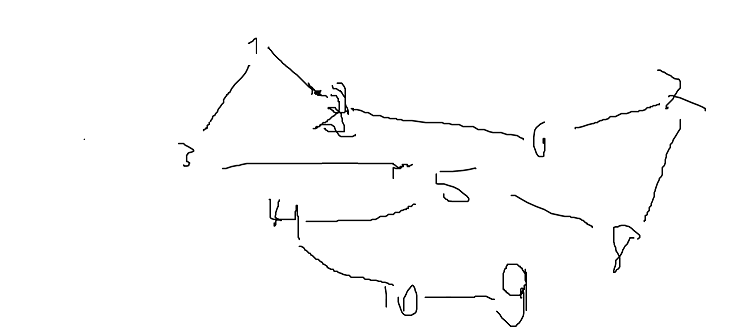 1
2
6
7
3
5
4
8
10
9